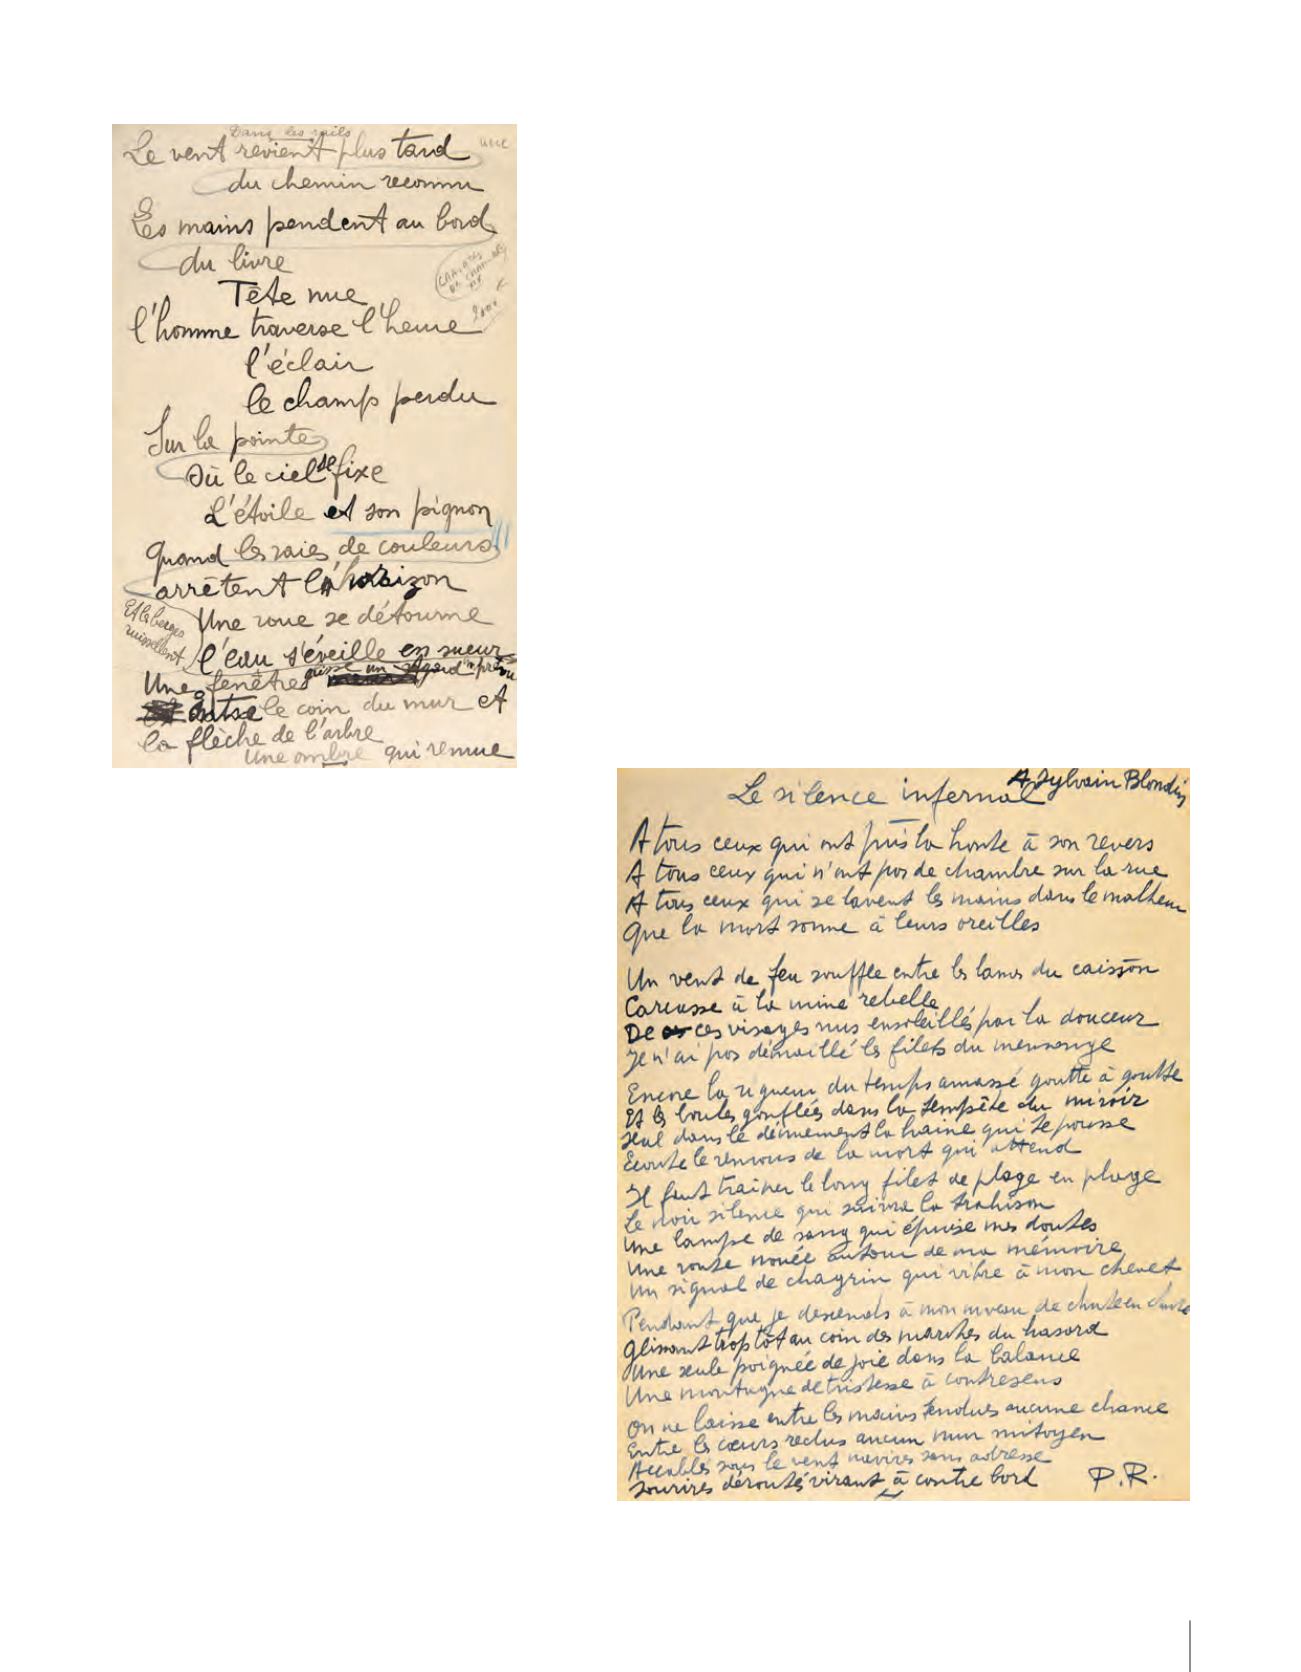 Dans les rails
Le vent revient plus tard
une
du chemin reconnu
Les mains pendent au bord
du livre
Tête nue
l'homme traverse l'heure
l'éclair
le champ perdu
Sur la pointe
Où le ciel se fixe
L'étoile et son pignon
Quand les raies de couleurs
arrêtent l'horizon
Et les berges
ruissellent
Une roue se détourne
l'eau s'éveille en sueur
Une fenêtre
entre le coin du mur et
la flèche de l'arbre
Une ombre qui remue
A Sylvain Blondin
Le silence infernal
A tous ceux qui ont pris la honte à son revers
A tous ceux qui n'ont pas de chambre sur la rue
A tous ceux qui se lavent les mains dans le malheur
Que la mort sonne à leurs oreilles
Un vent de feu souffle entre les lames du caisson
Carcasse à la mine rebelle
De ces visages nus ensoleillés par la douceur
Je n'ai pas démaillé les filets du mensonge
Encore la rigueur du temps amassé goutte à goutte
Et les boules gonflées dans la tempête du miroir
Seul dans le dénuement la haine qui te pousse
Ecoute le remous de la mort qui attend
Il faut trainer le long filet de plage en plage
Le noir silence qui suivra la trahison
Une lampe de sang qui épuise mes doutes
Une route nouée autour de ma mémoire
Un signal de chagrin qui vibre à mon chevet
Pendant que je descends à mon niveau de chute en chute
Glissant trop tôt au coin des marches du hasard
Une seule poignée de joie dans la balance
Une montagne de tristesse à contresens
On ne laisse entre les mains tendues aucune chance
Entre les cœurs reclus aucun mur mitoyen
Accablés sous le vent navires sans adresse
Sourires déroutés virant à contre bord
P.R.